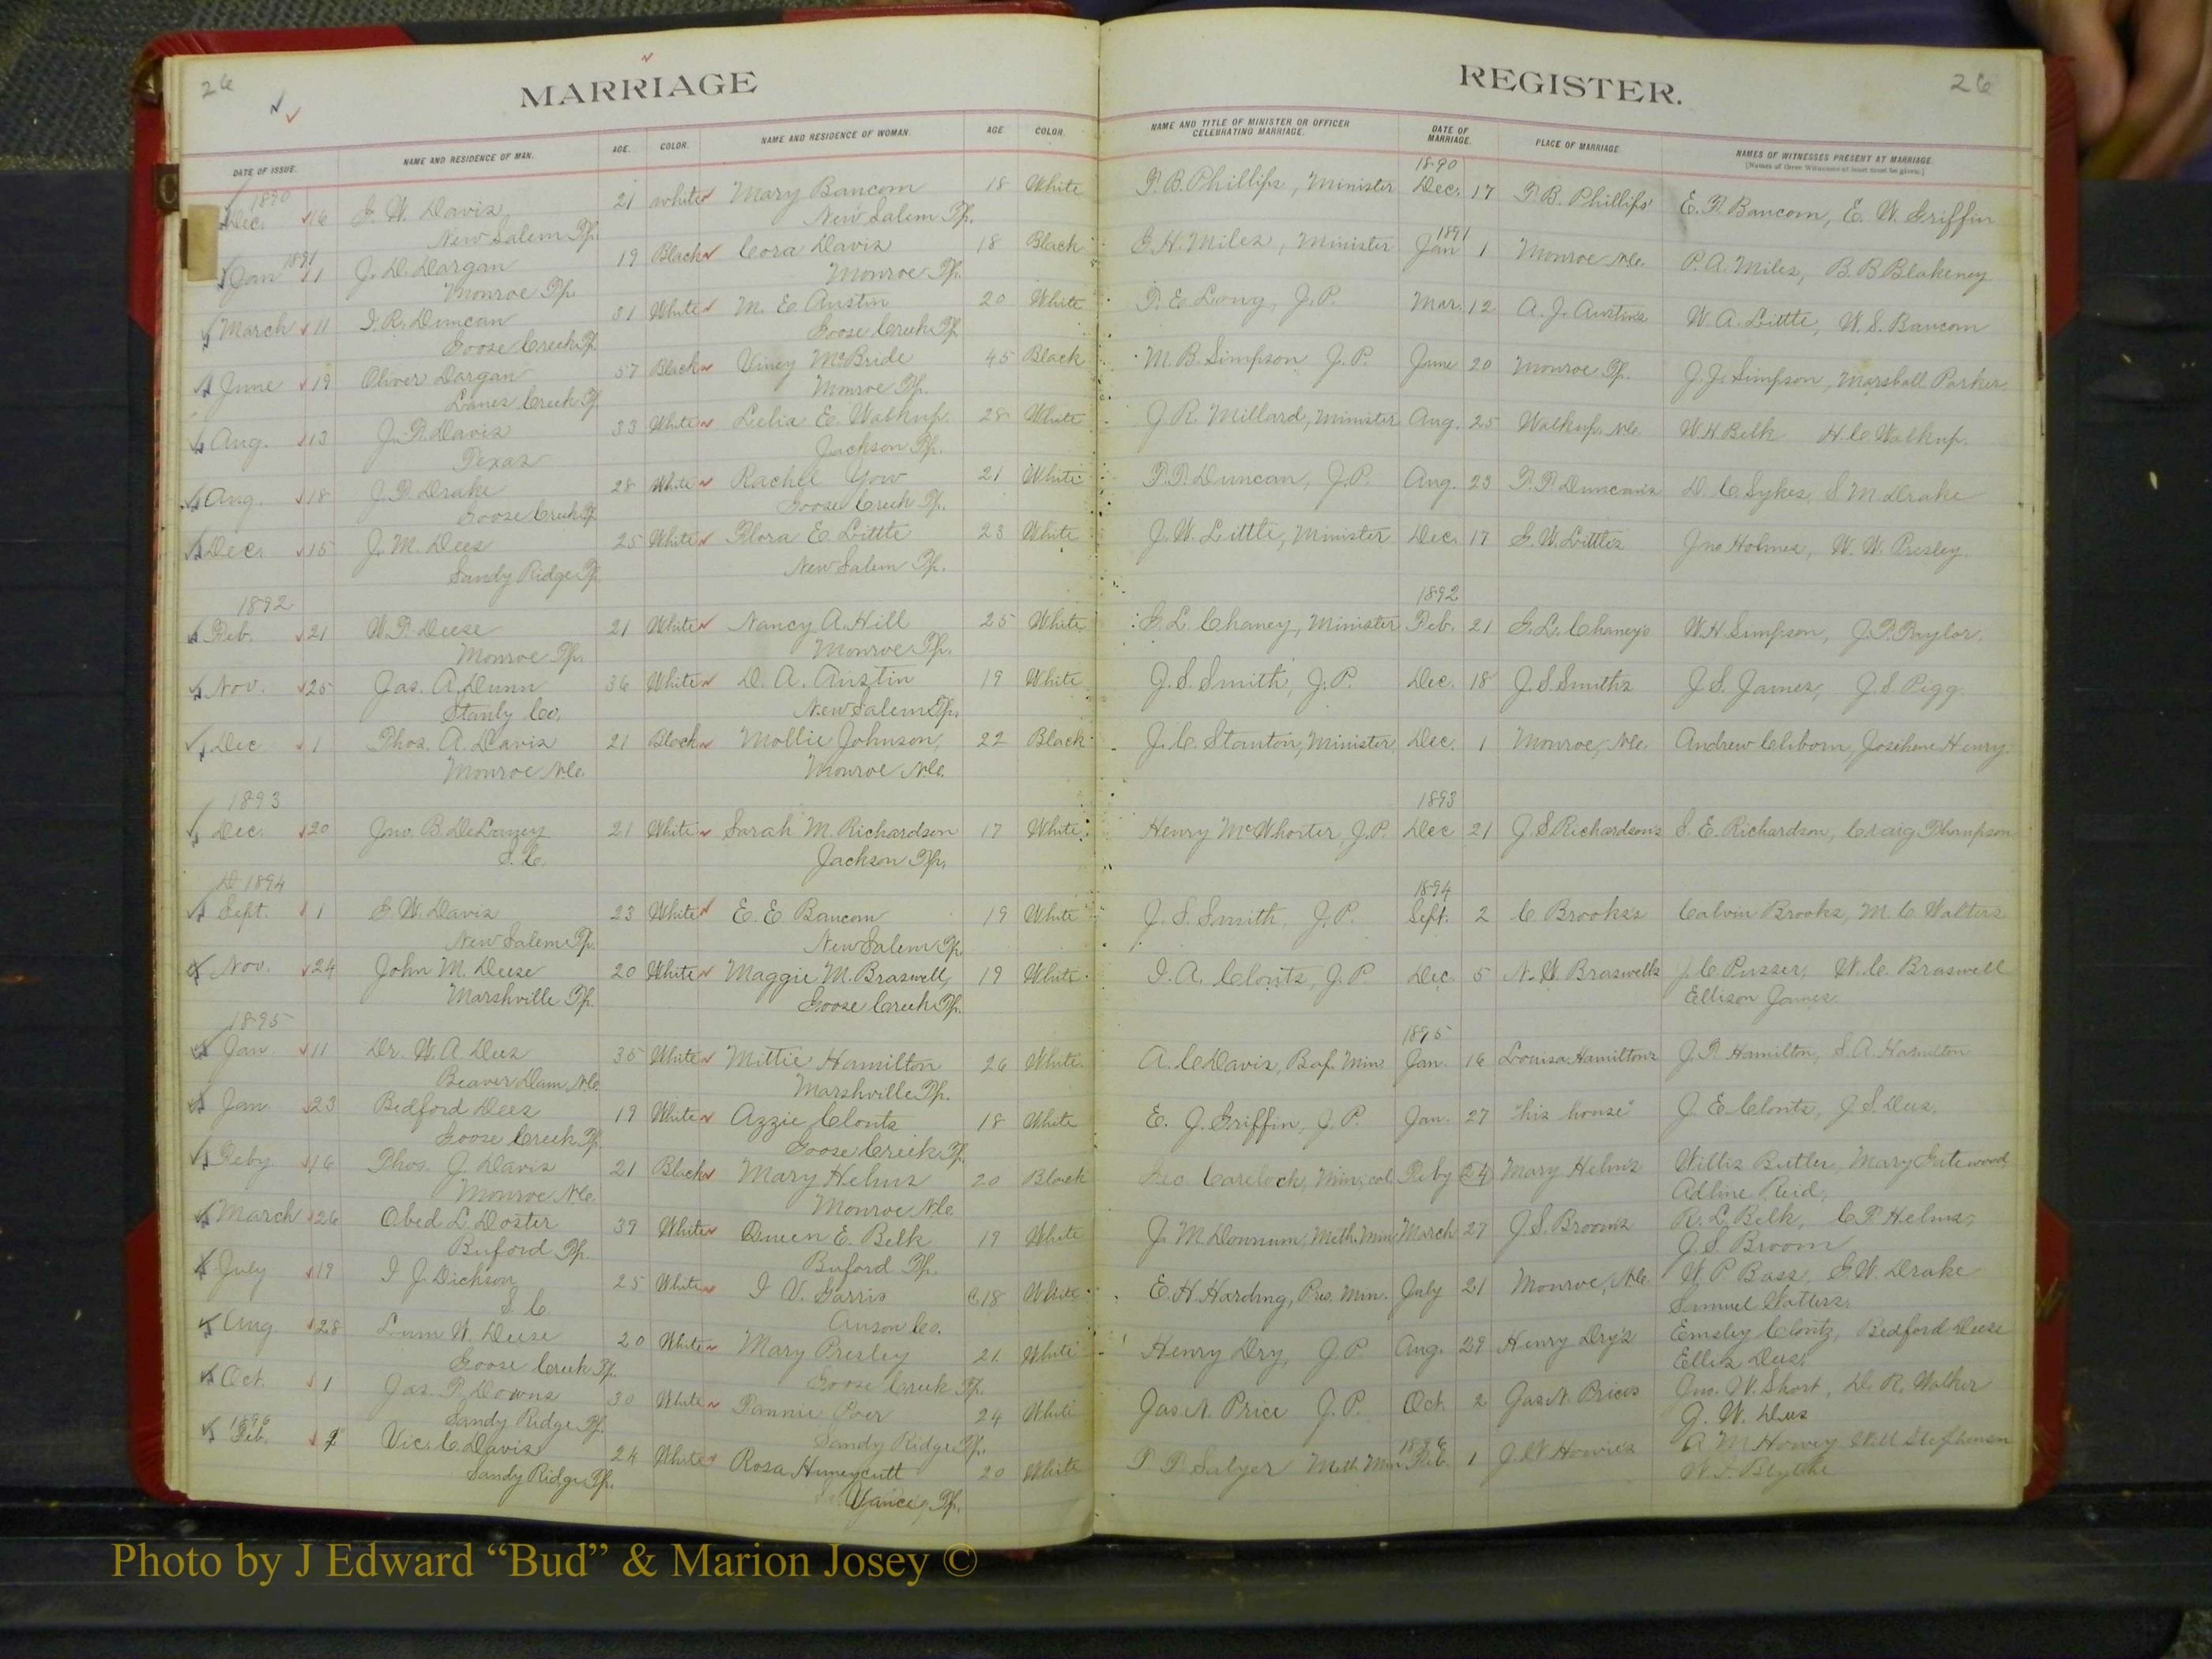 26
MARRIAGE
DATE OF ISSUE. NAME AND RESIDENCE OF MAN. AGE. COLOR. NAME AND RESIDENCE OF WOMAN. AGE COLOR.
1890
Dec. 16 G. W. Davis 21 white Mary Baucom 18 White
New Salem Tp. New Salem Tp.
1891
Jan 1 J. D. Dargan 19 Black Cora Davis 18 Black
Monroe Tp. Monroe Tp.
March 11 I. R. Duncan 31 White M. E. Austin 20 White
Goose Creek Tp. Goose Creek Tp.
June 19 Oliver Dargan 57 Black Viney McBride 45 Black
Lanes Creek Tp. Monroe Tp.
Aug. 13 J. T. Davis 33 White Lelia E. Walkup 28 White
Texas Jackson Tp.
Aug. 18 J. T. Drake 28 White Rachel Yow 21 White
Goose Creek Tp. Goose Creek Tp.
Dec. 15 J. M. Dees 25 White Flora E. Little 23 White
Sandy Ridge Tp. New Salem Tp.
1892
Feb. 21 W. T. Deese 21 White Nancy A. Hill 25 White
Monroe Tp. Monroe Tp.
Nov. 25 Jas. A. Dunn 36 White D. A. Austin 19 White
Stanly Co. New Salem Tp.
Dec 1 Thos. A. Davis 21 Black Mollie Johnson, 22 Black
Monroe N.C. Monroe N.C.
1893
Dec. 20 Jno. B. DeLaney 21 White Sarah M. Richardson 17 White
S.C. Jackson Tp.
1894
Sept. 1 G. W. Davis 23 White E. E. Baucom 19 White
New Salem Tp. New Salem Tp.
Nov. 24 John M. Deese 20 White Maggie M. Braswell, 19 White
Marshville Tp. Goose Creek Tp.
1895
Jan. 11 Dr. W. A. Dees 35 White Mittie Hamilton 26 White
Beaver Dam, N.C. Marshville Tp.
Jan. 23 Bedford Dees 19 White Azzie Clontz 18 White
Goose Creek Tp. Goose Creek Tp.
Feby. 16 Thos. J. Davis 21 Black Mary Helms 20 Black
Monroe N.C. Monroe N.C.
March 26 Obed L. Doster 39 White Queen E. Belk 19 White
Buford Tp. Buford Tp.
July 19 I J. Dickson 25 White I V. Garris 18 White
S.C. Anson Co.
Aug 28 Lum W. Deese 20 White Mary Presley 21 White
Goose Creek Tp. Goose Creek Tp.
Oct. 1 Jas. T. Downs 30 White Fannie Poer 24 White
Sandy Ridge Tp. Sandy Ridge Tp.
1896
Feb. Vic. C. Davis 24 White Rosa Huneycutt 20 White
Sandy Ridge Tp. Vance, Tp.
REGISTER.
26
NAME AND TITLE OF MINISTER OR OFFICER CELEBRATING MARRIAGE. DATE OF MARRIAGE. PLACE OF MARRIAGE NAMES OF WITNESSES PRESENT AT MARRIAGE.
[Names of three Witnesses at least must be given.]
1890
T. B. Phillips, Minister Dec. 17 T. B. Phillips' E. T. Baucom, E. W. Griffin
1891
G. H. Miles, Minister Jan 1 Monroe N.C. P. A. Miles, B. B Blakeney
T. E. Long, J. P. Mar. 12 A. J. Austin's W. A. Little, W. S. Baucom
M. B. Simpson J. P. June 20 Monroe Tp. J. J. Simpson, Marshall Parker
J. R. Millard, Minister Aug. 25 Walkup, N.C. W. H Belk H. C. Walkup.
T. T. Duncan, J. P. Aug. 23 T. T. Duncan's D. C. Sykes, S. M. Drake
J. W. Little, Minister Dec. 17 G. W. Little's Jno Holmes, W. W. Presley.
1892
G. L. Chaney, Minister Feb. 21 G. L. Chaney's W. H. Simpson, J. T. Taylor.
J. S. Smith, J. P. Dec. 18 J. S. Smith's J. S. James, J. S. Pigg.
J. C. Stanton, Minister, Dec. 1 Monroe, N.C. Andrew Cliborn, Josihene Henry.
1893
Henry McWhorter, J. P. Dec 21 J. S Richardson's S. E. Richardson, Craig Thompson
1894
J. S. Smith, J. P. Sept. 2 C Brooks's Calvin Brooks, M. C. Walters
I. A. Clontz, J. P. Dec. 5 N. W Braswell's J. C. Pusser, W. C. Braswell
Ellison James
1895
A. C. Davis, Bap. Min. Jan. 16 Louisa Hamilton's J. T. Hamilton, S. A. Hamilton
E. J. Griffin, J. P. Jan. 27 "his house" J. E. Clontz, J. S. Dees.
Geo Carelock, Min; col. Feby 24 Mary Helm's Willis Butler, Mary Gatewood
Adline Reid,
J. M. Downum, Meth. Min. March 27 J. S. Broom's R. L. Belk, C. T. Helms,
J. S. Broom
E. H. Harding, Pres. Min. July 21 Monroe, N.C. W. P Bass, G. W. Drake
Samuel Watters.
Henry Dry, J. P. Aug. 29 Henry Dry's Emsley Clontz, Bedford Deese
Ellis Dees.
Jas. N. Price J. P. Oct 2 Jas. N. Price's Jno. W. Short, D. R. Walker
J. W. Dees
1896
T. T. Salyer Meth Min Feb. 1 J. W Howie's A. M Howey W. U Stephenson
W. J. Blythe
Photo by J Edward “Bud” & Marion Josey ©